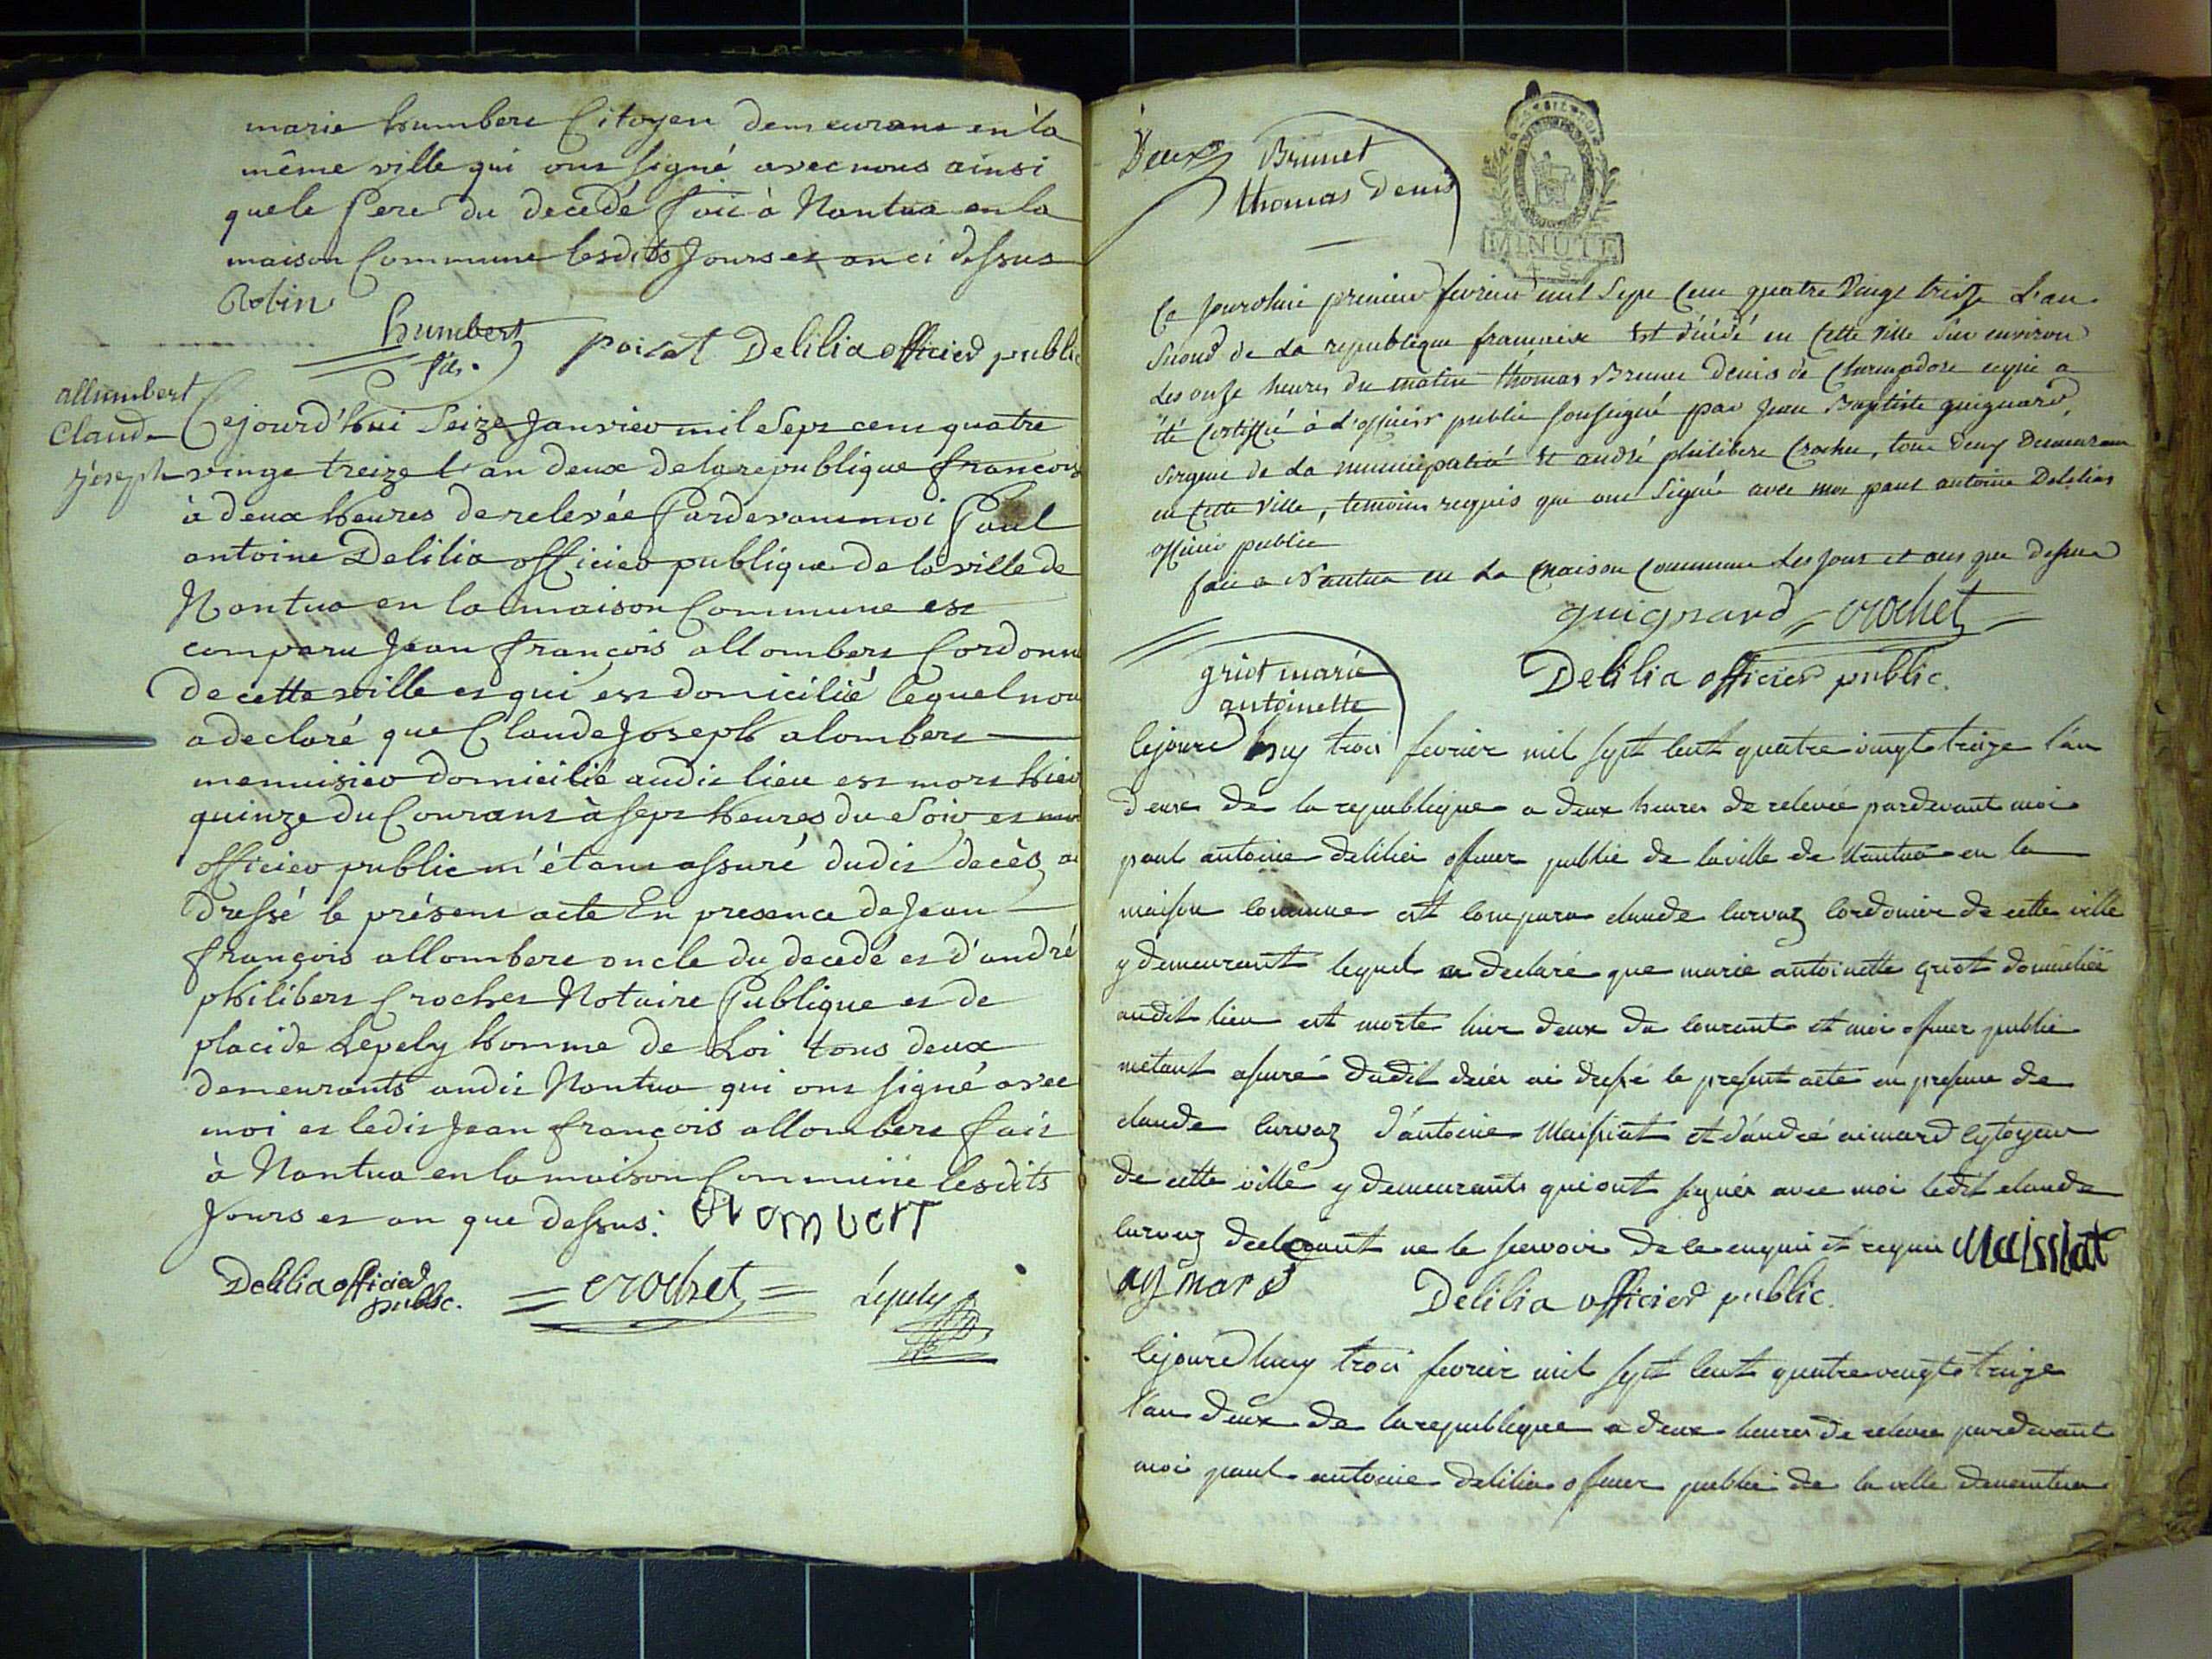 marie humbert Citoyen demeurant en la
même ville qui ont signé avec nous ainsi
que le Pere du decedé fait à Nantua en la
maison Commune lesdits Jours et an ci dessus
Robin
humbert
fils.
poisat Delilia officier public
allumbert
Claude
joseph
Cejourd'hui Seize Janvier mil Sept cent quatre
vingt treize l'an deux de la republique francois
à deux heures de relevée Pardevant moi Paul
antoine Delilia officier publique de la ville de
Nantua en la maison Commune est
comparu Jean françois allombert Cordonn
de cette ville et qui est domicilié lequel nou
a declaré que Claude Joseph alombert
menuisier domicilié audit lieu est mort hier
quinze du Courant à sept heures du Soir et moi
officier public m'étant assuré dudit decès ai
dressé le présent acte En presence de Jean
françois allombert oncle du decedé et d'andré
philibert Crochet Notaire Publique et de
placide Lepely homme de Loi tous deux
demeurants audit Nantua qui ont signé avec
moi et ledit Jean françois allombert fait
à Nantua en la maison Commune lesdits
Jours et an que dessus. alombert
Delilia officier
public.
crochet
Lépely
Deux
Brunet
thomas Denis
MINUTE
4 S
Ce jourdhui premier fevrier mil Sept Cent quatre Vingt treize L'an
Second de La republique francaise Est décédé en Cette Ville Sur environ
Les onze heures du matin thomas Brunet Denis de
été Certiffié à L'officier public soussigné par Jean Baptiste guignard,
Sergent de La municipalité Et andré philibert Crochet, tous deux Demeurant
en Cette Ville, temoins requis qui ont Signé avec moi paul antoine Delilia
officier public
fait a Nantua en La maison Commune Les jour et ans que dessus
guignard crochet
Delilia officier public.
griot marie
antoinette
Cejourd huy trois fevrier mil sept cent quatre vingt treize l'an
deux de la republique a deux heures de relevée pardevant moi
paul antoine delilia officier public de la ville de Nantua en la
maison commune est comparu claude curvaz cordonier de cette ville
y demeurant lequel a declaré que marie antoinette griot domiciliée
audit lieu est morte hier deux du courant et moi officier public
metant assuré dudit décès ai dressé le present acte en presence de
claude curvaz d'antoine Maissiat et d'andré aimard cytoyens
de cette ville y demeurants qui ont signés avec moi ledit claude
curvaz declarant ne le scavoir de ce enquis et requis Maissiat
aymard
Delilia officier public.
Cejourdhuy trois fevrier mil sept cent quatre vingts treize
l'an deux de la republique a deux heures de relevee pardevant
moi paul antoine delilia officier public de la ville de nantua